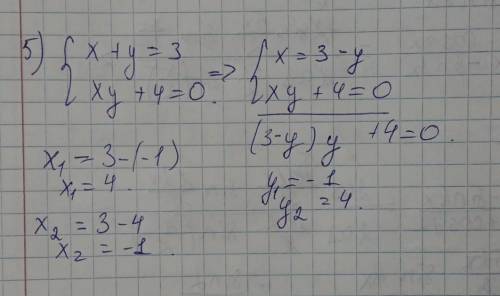 5) { x + y = 3 => { x = 3 - y
{ xy + 4 = 0. { xy + 4 = 0
(3-y) y + 4 = 0.
x₁ = 3 - (-1)
x₁ = 4.
y₁ = -1
y₂ = 4.
x₂ = 3 - 4
x₂ = -1.